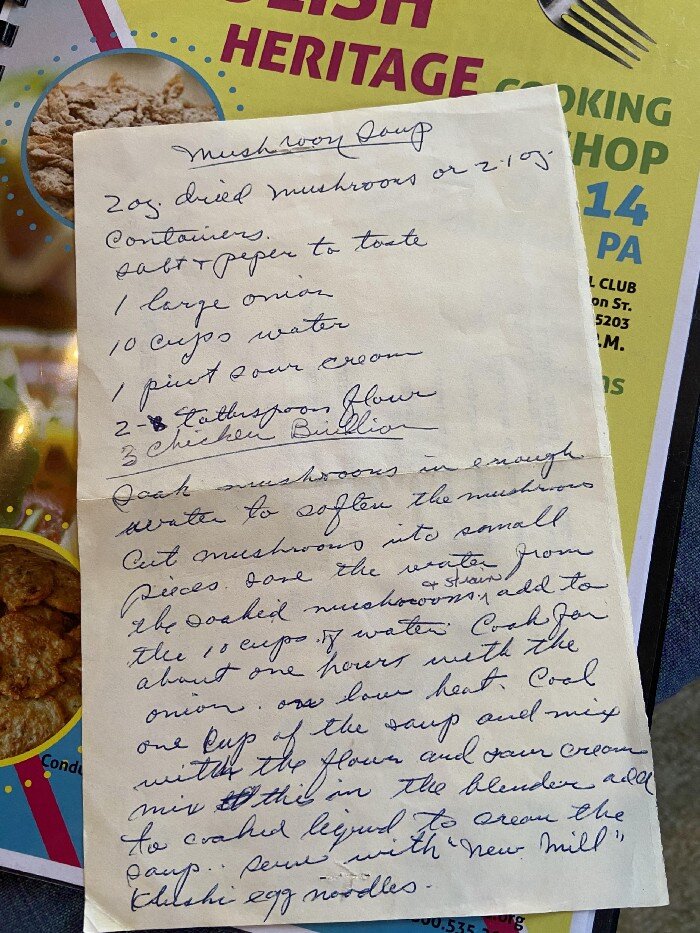 LISH
HERITAGE
COOKING
SHOP
14
PA
L CLUB
on St.
5203
P.M.
ns
Mushroom Soup
2 oz. dried mushrooms or 2-1 oz.
Containers.
salt + peper to taste
1 large onion
10 cups water
1 pint sour cream
2- tablespoon flour
3 chicken Buillion
Soak mushrooms in enough
water to soften the mushroom
Cut mushrooms into small
pieces. save the water from
the soaked mushrooms, & strain add to
the 10 cups of water. Cook for
about one hours with the
onion. on low heat. Cool
one cup of the soup and mix
with the flour and sour cream
mix this in the blender add
to cooked liquid to cream the
soup. serve with "New Mill"
Klushi egg noodles.
Condu
00.535.2
.org